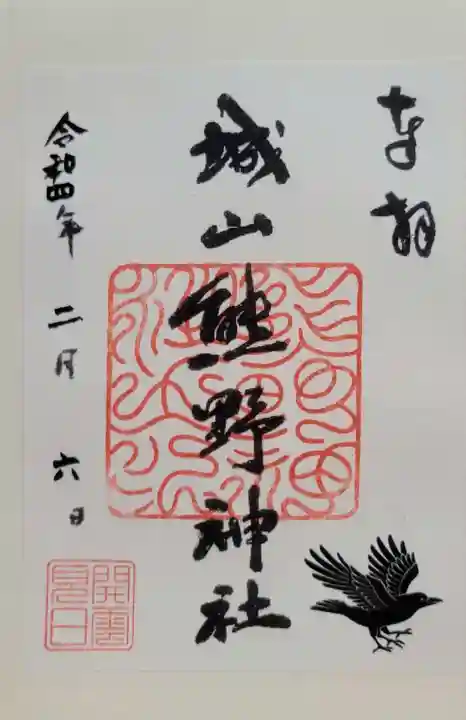 奉拝
城山熊野神社
令和四年 二月 六日
開雲
見日